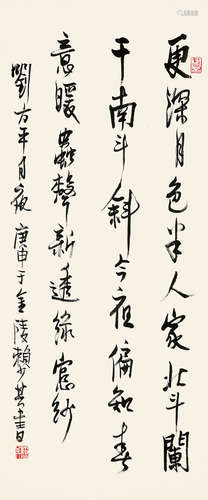 更深月色半人家北斗闌
干南斗斜今夜偏知春
意暖蟲聲新透綠窗紗
劉方平月夜 庚申于金陵賴少其書